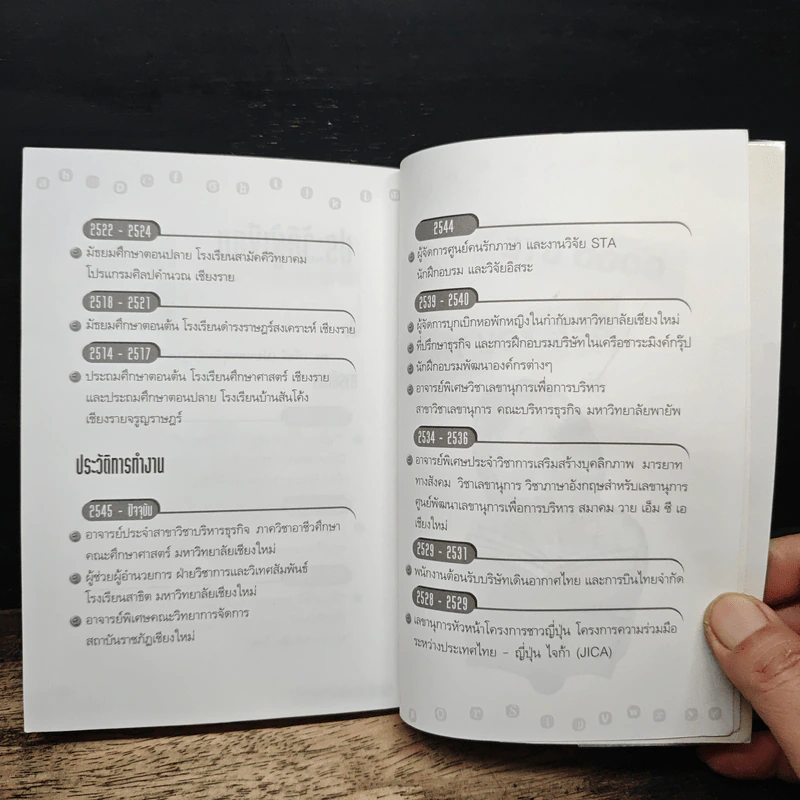 2522 - 2524
มัธยมศึกษาตอนปลาย โรงเรียนสามัคคีวิทยาคม
โปรแกรมศิลปคำนวณ เชียงราย
2518 - 2521
มัธยมศึกษาตอนต้น โรงเรียนดำรงราษฎร์สงเคราะห์ เชียงราย
2514 - 2517
ประถมศึกษาตอนต้น โรงเรียนศึกษาศาสตร์ เชียงราย
และประถมศึกษาตอนปลาย โรงเรียนบ้านสันโค้ง
เชียงรายจรูญราษฎร์
ประวัติการทำงาน
2545 - ปัจจุบัน
อาจารย์ประจำสาขาวิชาบริหารธุรกิจ ภาควิชาอาชีวศึกษา
คณะศึกษาศาสตร์ มหาวิทยาลัยเชียงใหม่
ผู้ช่วยผู้อำนวยการ ฝ่ายวิชาการและวิเทศสัมพันธ์
โรงเรียนสาธิต มหาวิทยาลัยเชียงใหม่
อาจารย์พิเศษคณะวิทยาการจัดการ
สถาบันราชภัฏเชียงใหม่
2544
ผู้จัดการศูนย์คนรักภาษา และงานวิจัย STA
นักฝึกอบรม และวิจัยอิสระ
2539 - 2540
ผู้จัดการบุกเบิกหอพักหญิงในกำกับมหาวิทยาลัยเชียงใหม่
ที่ปรึกษาธุรกิจ และการฝึกอบรมบริษัทในเครือชาระมิงค์กรุ๊ป
นักฝึกอบรมพัฒนาองค์กรต่างๆ
อาจารย์พิเศษวิชาเลขานุการเพื่อการบริหาร
สาขาวิชาเลขานุการ คณะบริหารธุรกิจ มหาวิทยาลัยพายัพ
2534 - 2536
อาจารย์พิเศษประจำวิชาการเสริมสร้างบุคลิกภาพ มารยาท
ทางสังคม วิชาเลขานุการ วิชาภาษาอังกฤษสำหรับเลขานุการ
ศูนย์พัฒนาเลขานุการเพื่อการบริหาร สมาคม วาย เอ็ม ซี เอ
เชียงใหม่
2529 - 2531
พนักงานต้อนรับบริษัทเดินอากาศไทย และการบินไทยจำกัด
2528 - 2529
เลขานุการหัวหน้าโครงการชาวญี่ปุ่น โครงการความร่วมมือ
ระหว่างประเทศไทย - ญี่ปุ่น ไจก้า (JICA)